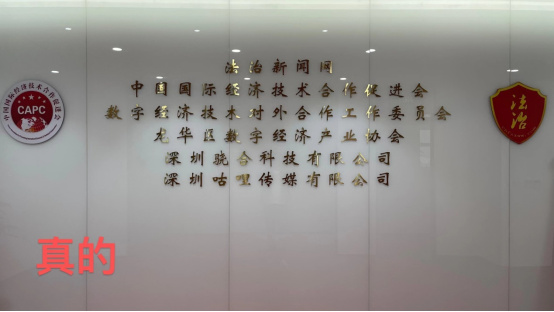 法治新闻网
中国国际经济技术合作促进会
数字经济技术对外合作工作委员会
龙华区数字经济产业协会
深圳骁合科技有限公司
深圳咕哩传媒有限公司
中国国际经济技术合作促进会
CAPC
法治
真的